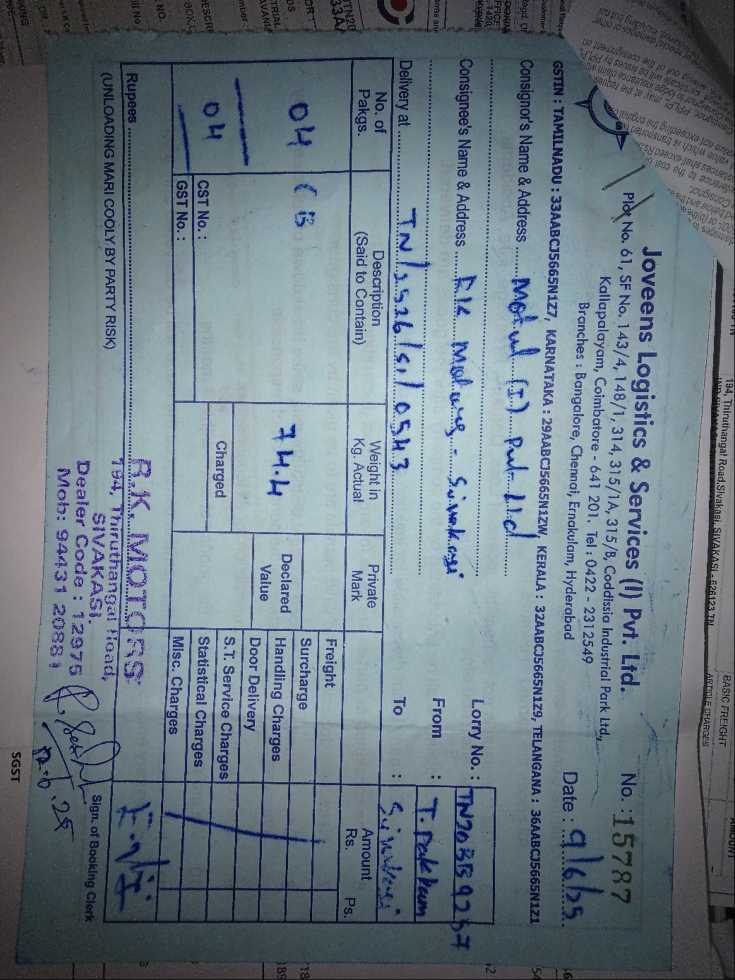 Joveens Logistics & Services (I) Pvt. Ltd.
No. : 15787
Plot No. 61, SF No. 143/4, 148/1, 314, 315/1A, 315/B, Coddissia Industrial Park Ltd.,
Kallapalayam, Coimbatore - 641 201. Tel : 0422 - 2312549
Date : 9/6/25
Branches : Bangalore, Chennai, Ernakulam, Hyderabad
GSTIN : TAMILNADU : 33AABCJ5665N1Z7, KARNATAKA : 29AABCJ5665N1ZW, KERALA : 32AABCJ5665N1Z9, TELANGANA : 36AABCJ5665N1Z1
Consignor's Name & Address Motul (I) Pvt Ltd
Lorry No. : TN20BB9257
Consignee's Name & Address R.K Motors - Sivakasi
From :
Delivery at TN/2526/SI/0543
To : Sivakasi
No. of Pakgs.
Description (Said to Contain)
Weight in Kg. Actual
Private Mark
Amount Rs. Ps.
04 CB
74.4
Freight
Declared Value
Surcharge
Handling Charges
Door Delivery
04
Charged
S.T. Service Charges
CST No. :
Statistical Charges
GST No. :
Misc. Charges
Rupees
R.K. MOTORS
194, Thiruthangal Road,
SIVAKASI.
Dealer Code : 12975
Mob: 94431 20881
(UNLOADING MARI COOLY BY PARTY RISK)
Sign. of Booking Clerk
194, Thiruthangal Road,Sivakasi, SIVAKASI - 626123,TN
BASIC FREIGHT
SGST